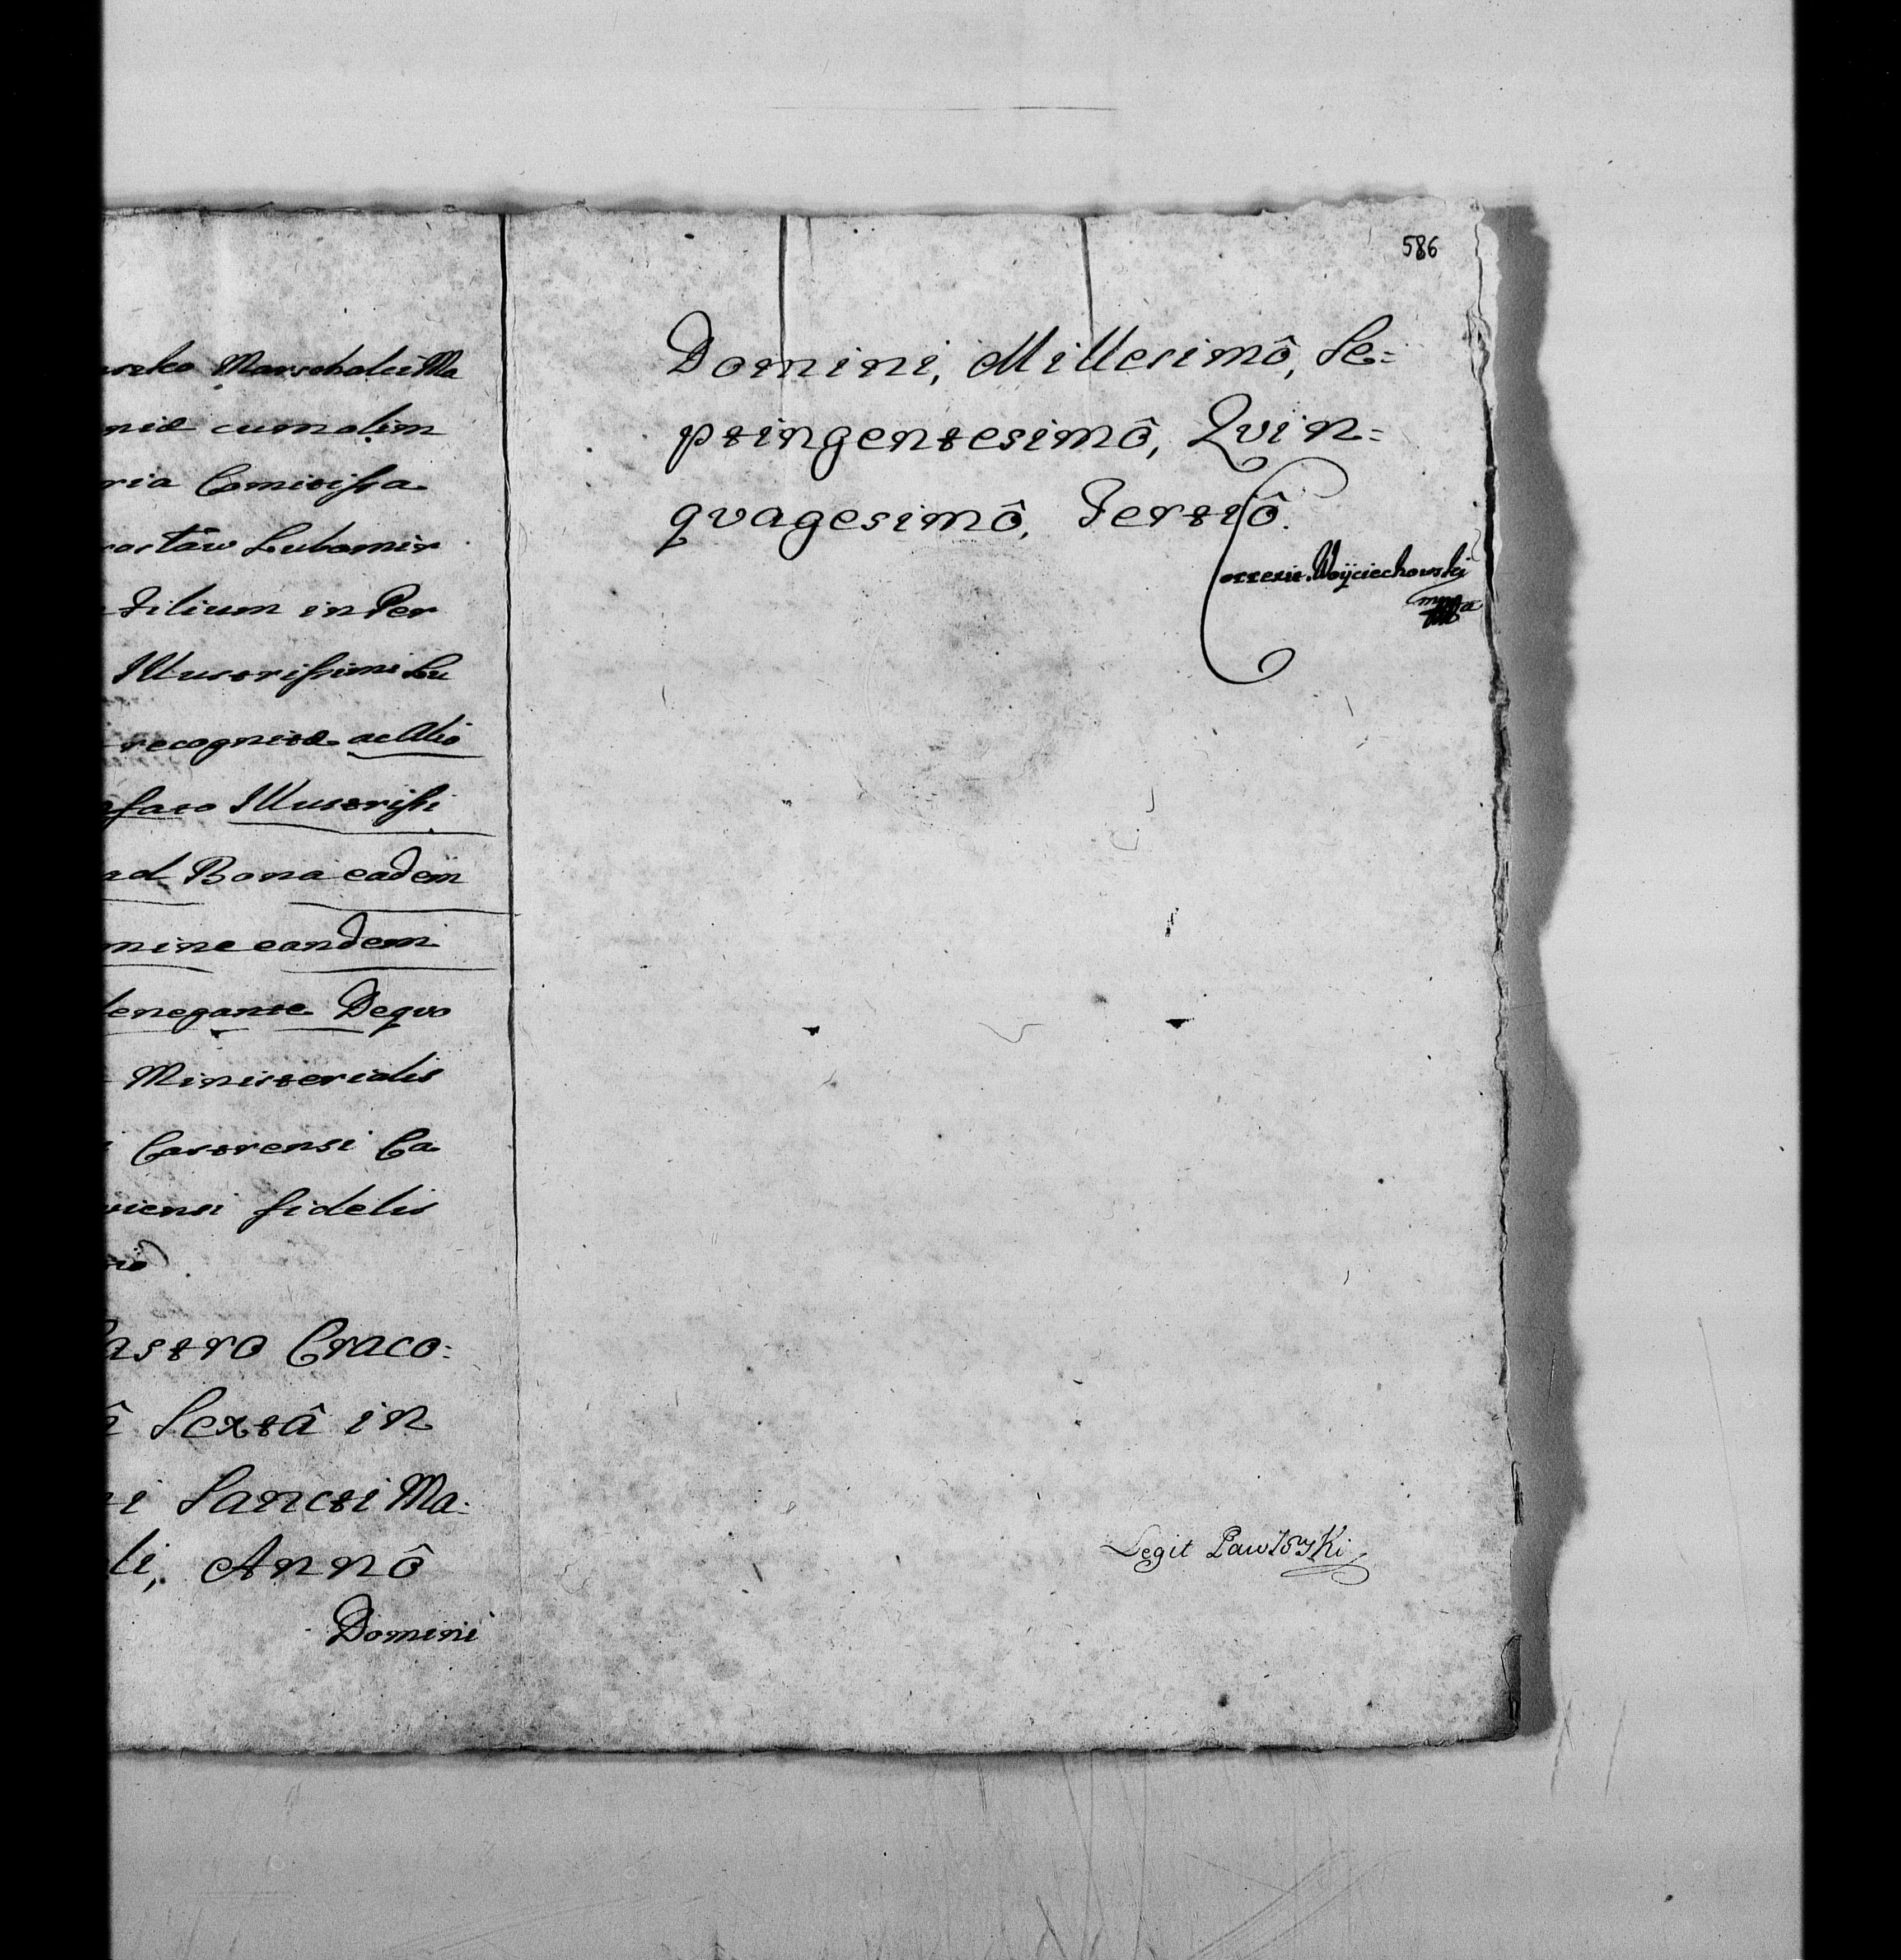 Marschalci Ma
niæ cum olim
ria Comitissa
Lubomir
Filium in Per
Illustrissimi Lu
recognitæ ac Alio
Illustrissi
ad Bona eadem
mine eandem
denegante De quo
Ministerialis
Castrensi Ca
viensi fidelis
Castro Craco:
Sextâ in
i Sancti Ma:
li, Annô
Domini
586
Domini, Millesimô, Se:
ptingentesimô, Qvin:
qvagesimô, Tertiô.
Correxit Woyciechowski
mpp
Legit Pawłowski